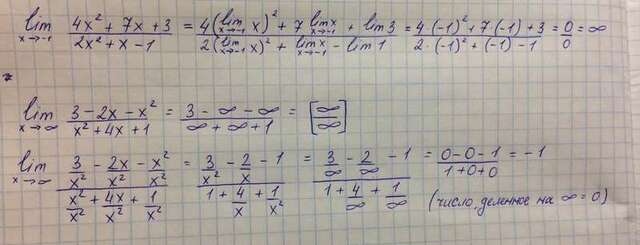 lim x→-1 (4x² + 7x + 3)/(2x² + x - 1) = (4(lim x→-1 x)² + 7 lim x→-1 x + lim 3)/(2(lim x→-1 x)² + lim x→-1 x - lim 1) = (4·(-1)² + 7·(-1) + 3)/(2·(-1)² + (-1) - 1) = 0/0 = ∞
lim x→∞ (3 - 2x - x²)/(x² + 4x + 1) = (3 - ∞ - ∞)/(∞ + ∞ + 1) = [∞/∞]
lim x→∞ (3/x² - 2x/x² - x²/x²)/(x²/x² + 4x/x² + 1/x²) = (3/x² - 2/x - 1)/(1 + 4/x + 1/x²) = (3/∞ - 2/∞ - 1)/(1 + 4/∞ + 1/∞) = (0 - 0 - 1)/(1 + 0 + 0) = -1
(число, деленное на ∞ = 0)